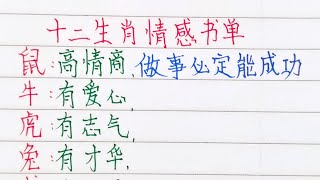 十二生肖情感书单
鼠:高情商,做事必定能成功
牛:有爱心,
虎:有志气,
兔:有才华,